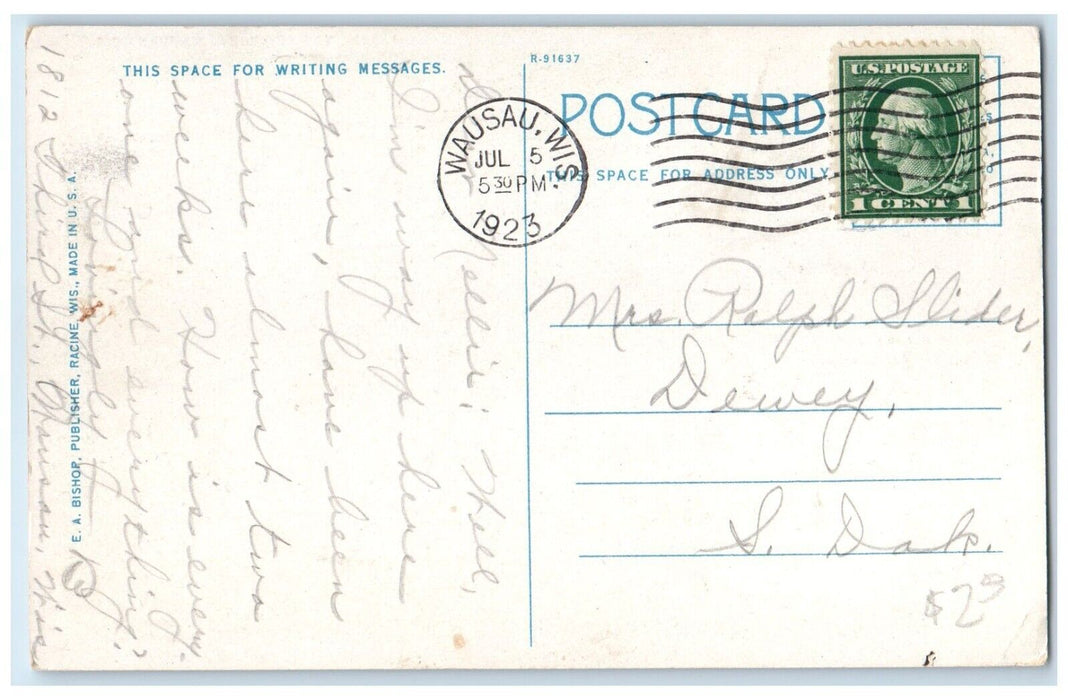 THIS SPACE FOR WRITING MESSAGES.
R-91637
POSTCARD
THIS SPACE FOR ADDRESS ONLY
U.S.POSTAGE
1 CENT 1
WAUSAU, WIS.
JUL 5
5 30 PM
1923
Mrs. Ralph Slider,
Dewey,
S. Dak.
$2 9
Nellie; Well,
I'm way up here
again, have been
here almost two
weeks. How is every-
one and everything?
Lovingly
E. A. BISHOP, PUBLISHER, RACINE, WIS., MADE IN U. S. A.
1812 St., Wausau, Wis